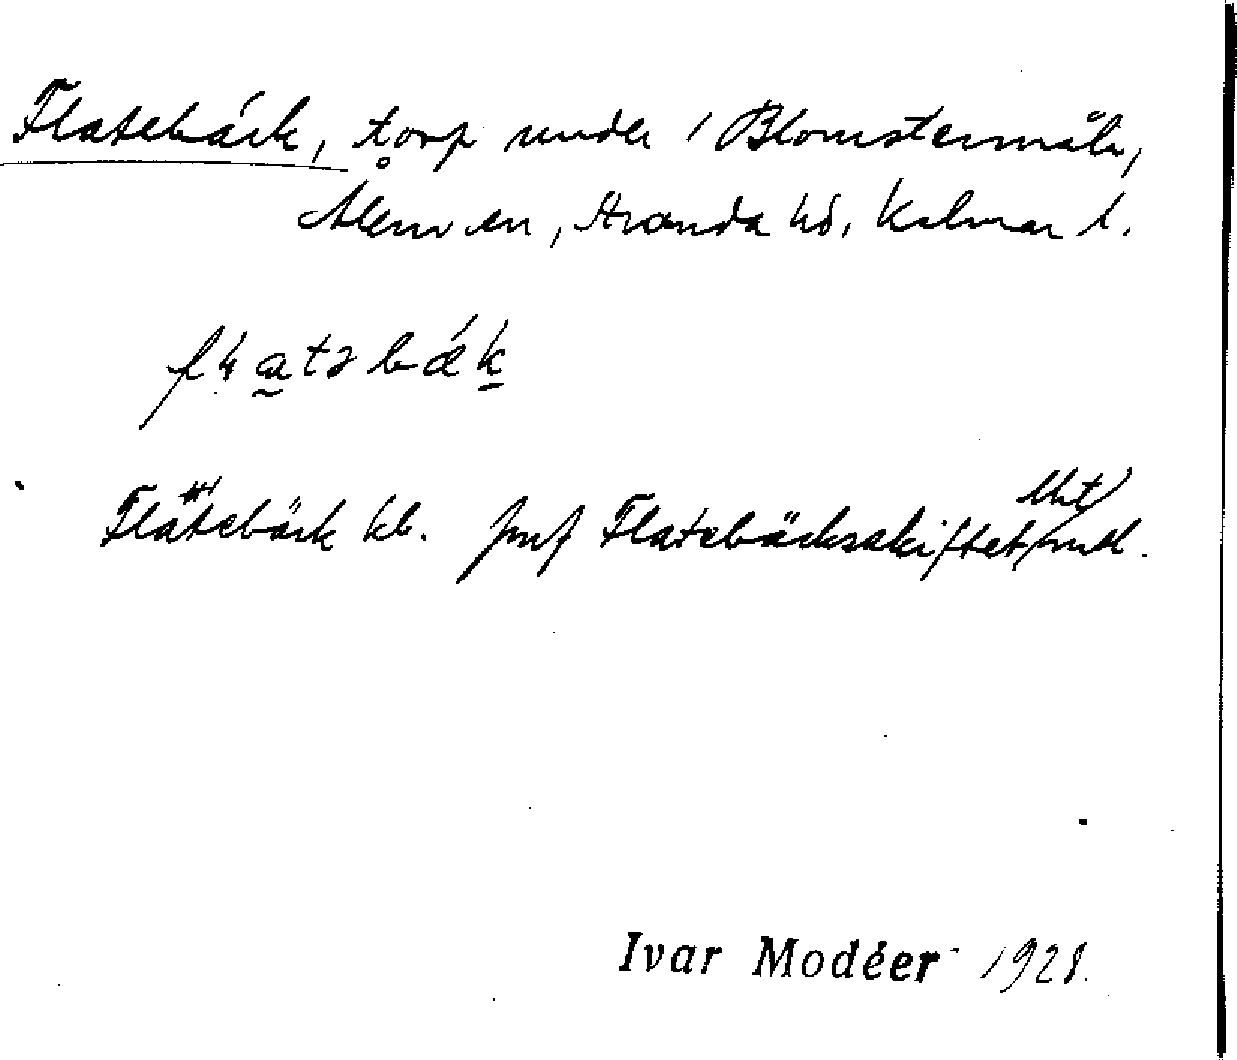 Flatebäck, torp under 1 Blomstermåla,
Ålem sn, Stranda hd, Kalmar l.
Flatebäck kb. jmf Flatebäcksskiftet
Ivar Modéer 1928.